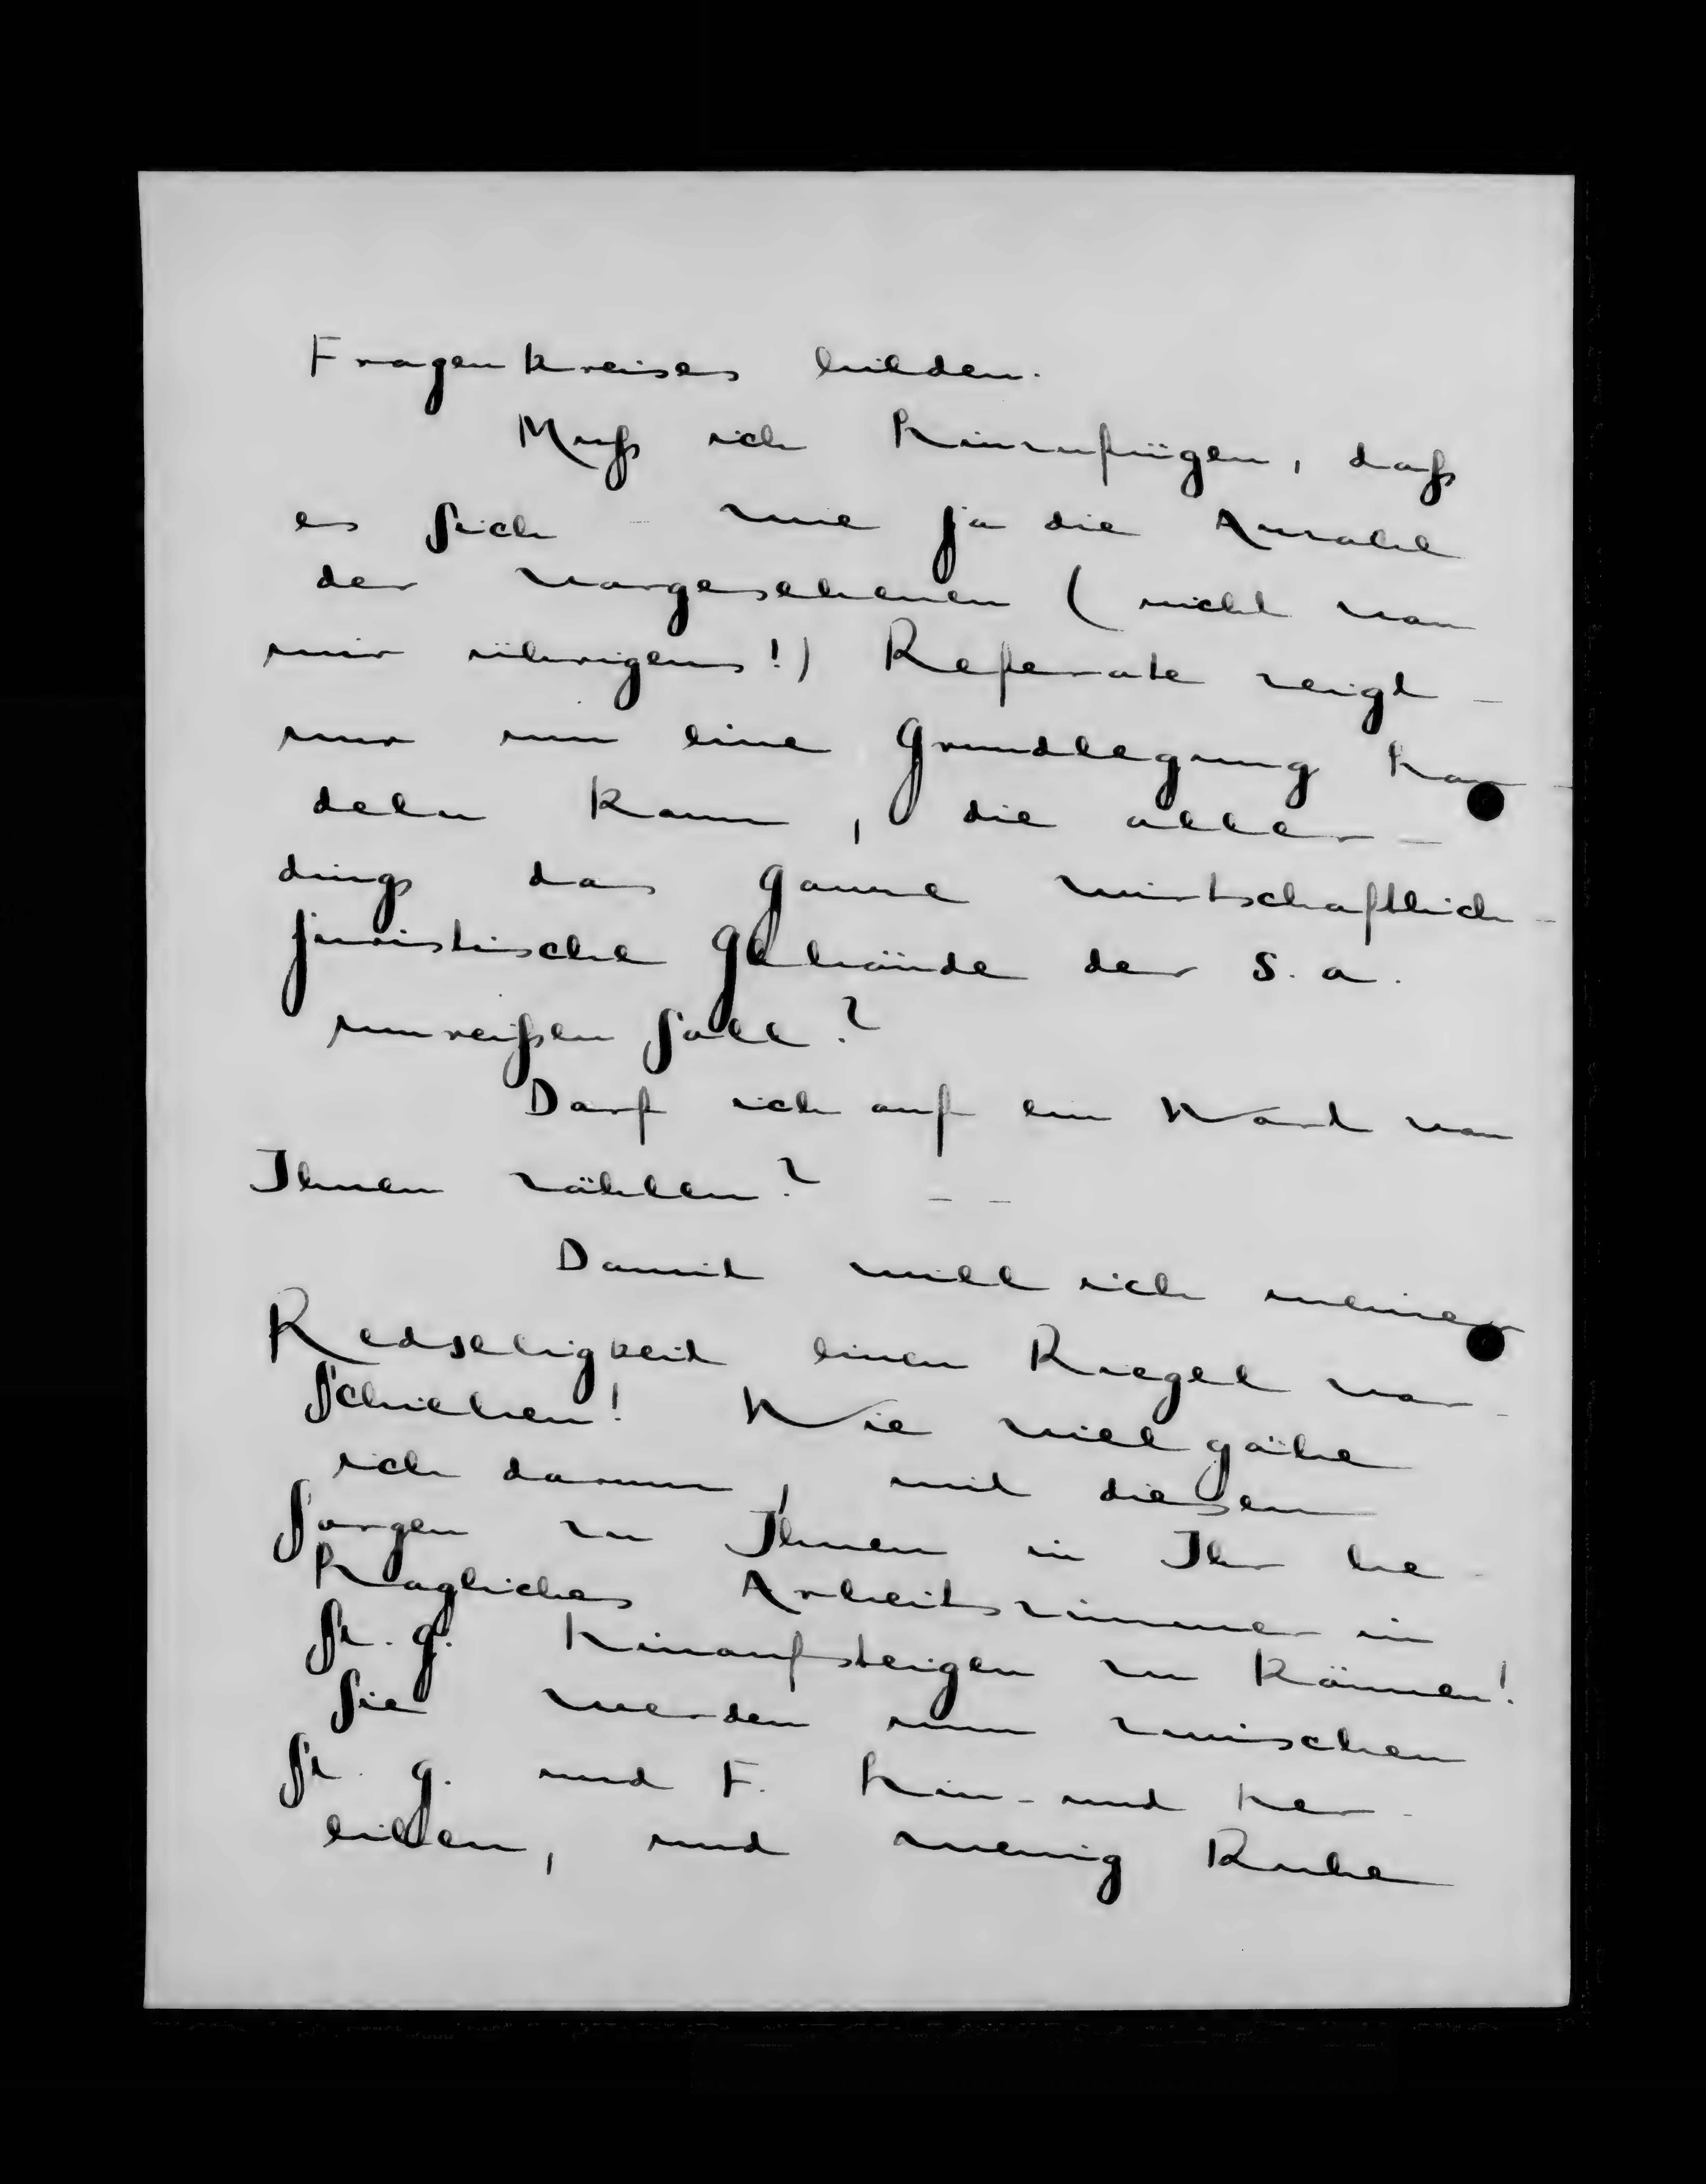 Fragenkreises bilden.
Muß ich hinzufügen, daß
es sich – wie ja die Anzahl
der vorgesehenen (nicht von
mir übrigens!) Referate zeigt –
nur um eine Grundlegung han-
deln kann, die aller-
dings das ganze wirtschaftlich-
juristische Gebäude der S. a.
umreißen soll?
Darf ich auf ein Wort von
Ihnen zählen? – –
Damit will ich meiner
Redseligkeit einen Riegel vor-
schieben! Wie viel gäbe
ich darum, mit diesen
Sorgen zu Ihnen in Ihr be-
hagliches Arbeitszimmer in
St. G. hinaufsteigen zu können!
Sie werden nun zwischen
St. G. und F. hin- und her-
eilen, und wenig Ruhe